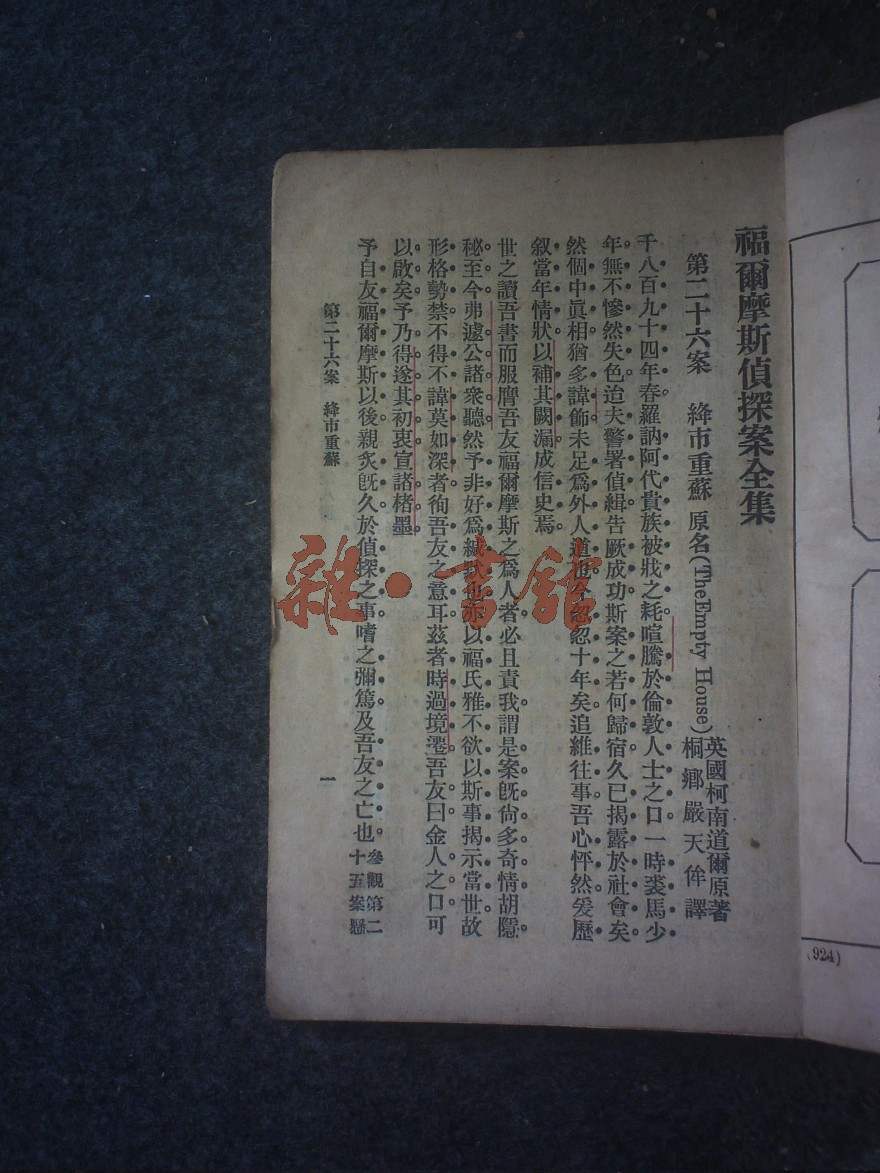 福爾摩斯偵探案全集
第二十六案 絳市重蘇 原名(The Empty House)
英國柯南道爾原著
桐鄉嚴天侔譯
千八百九十四年春羅訥阿代貴族被戕之耗喧騰於倫敦人士之口一時裘馬少
年無不慘然失色迨夫警署偵緝告厥成功斯案之若何歸宿久已揭露於社會矣
然個中眞相猶多諱飾未足爲外人道也今忽忽十年矣追維往事吾心怦然爰歷
叙當年情狀以補其闕漏成信史焉
世之讀吾書而服膺吾友福爾摩斯之爲人者必且責我謂是案旣尙多奇情胡隱
秘至今弗遽公諸衆聽然予非好爲緘默也亦以福氏雅不欲以斯事揭示當世故
形格勢禁不得不諱莫如深者徇吾友之意耳茲者時過境遷吾友曰金人之口可
以啟矣予乃得遂其初衷宣諸楮墨
予自友福爾摩斯以後親炙旣久於偵探之事嗜之彌篤及吾友之亡也參觀第二十五案懸
第二十六案 絳市重蘇
一
雜·書館
(924)